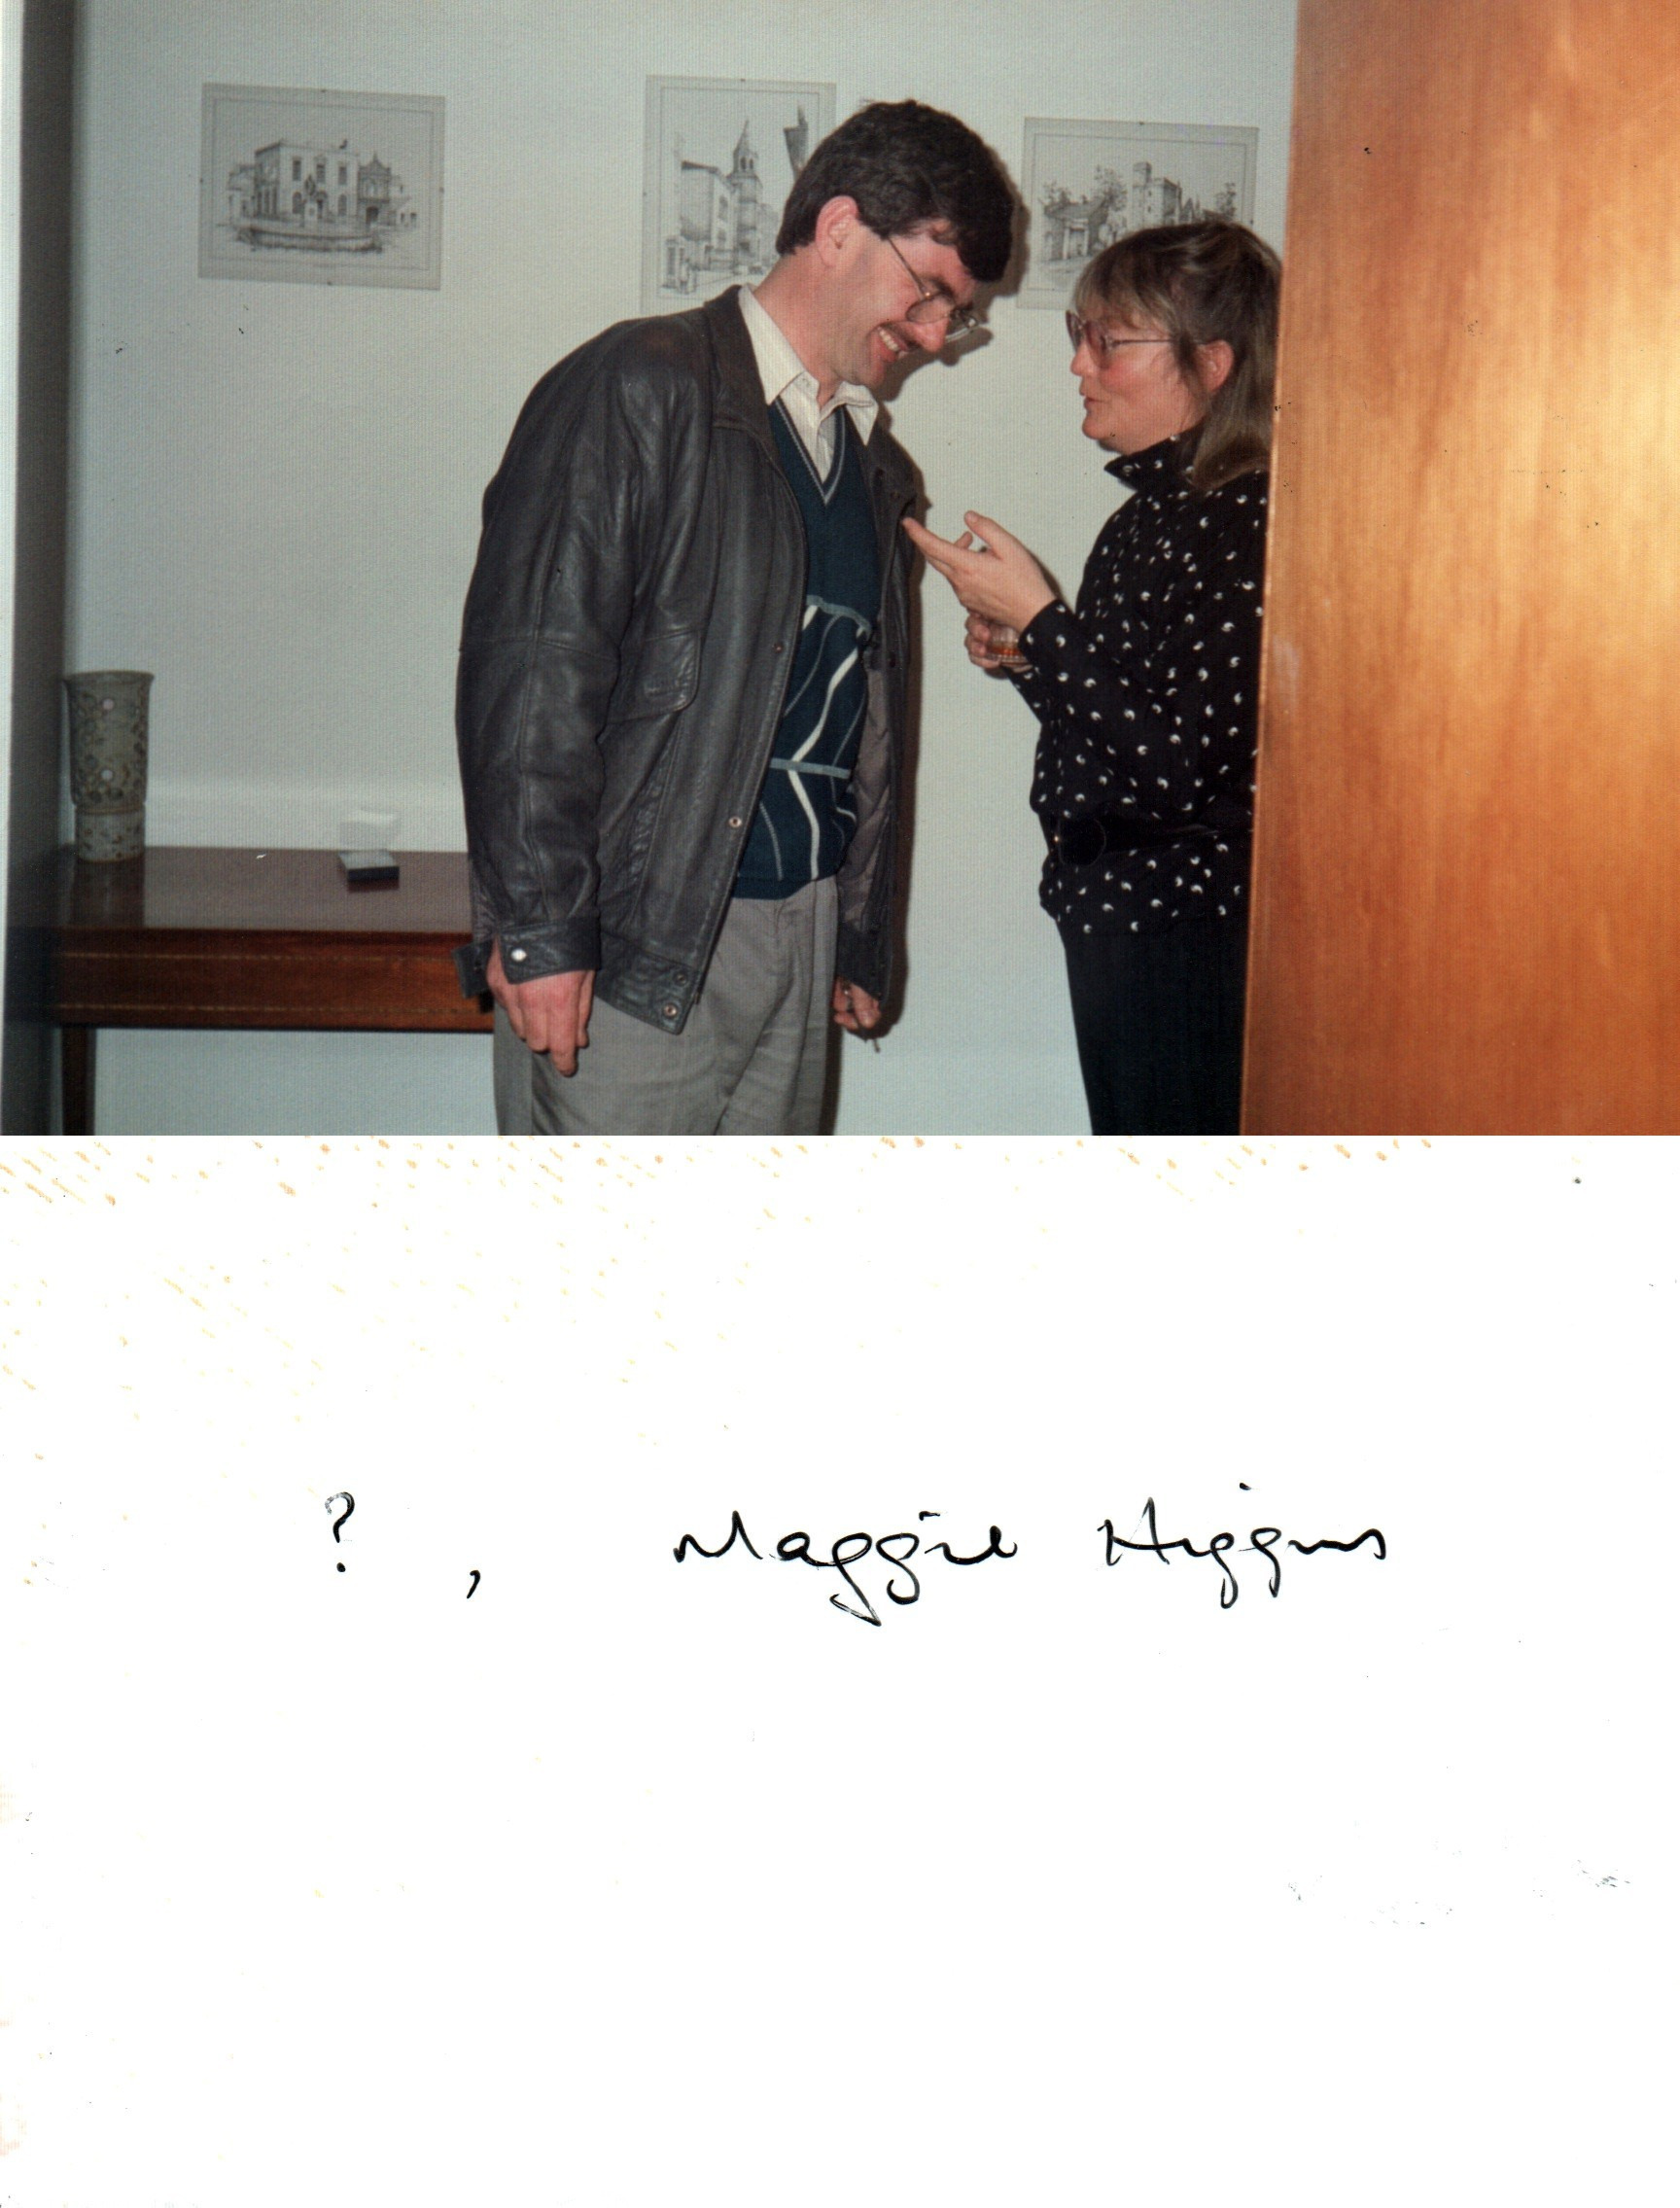 ? , Maggie Higgins